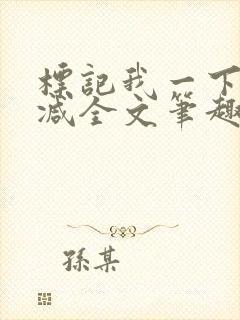 標記我一下
减全文筆趣
孫某